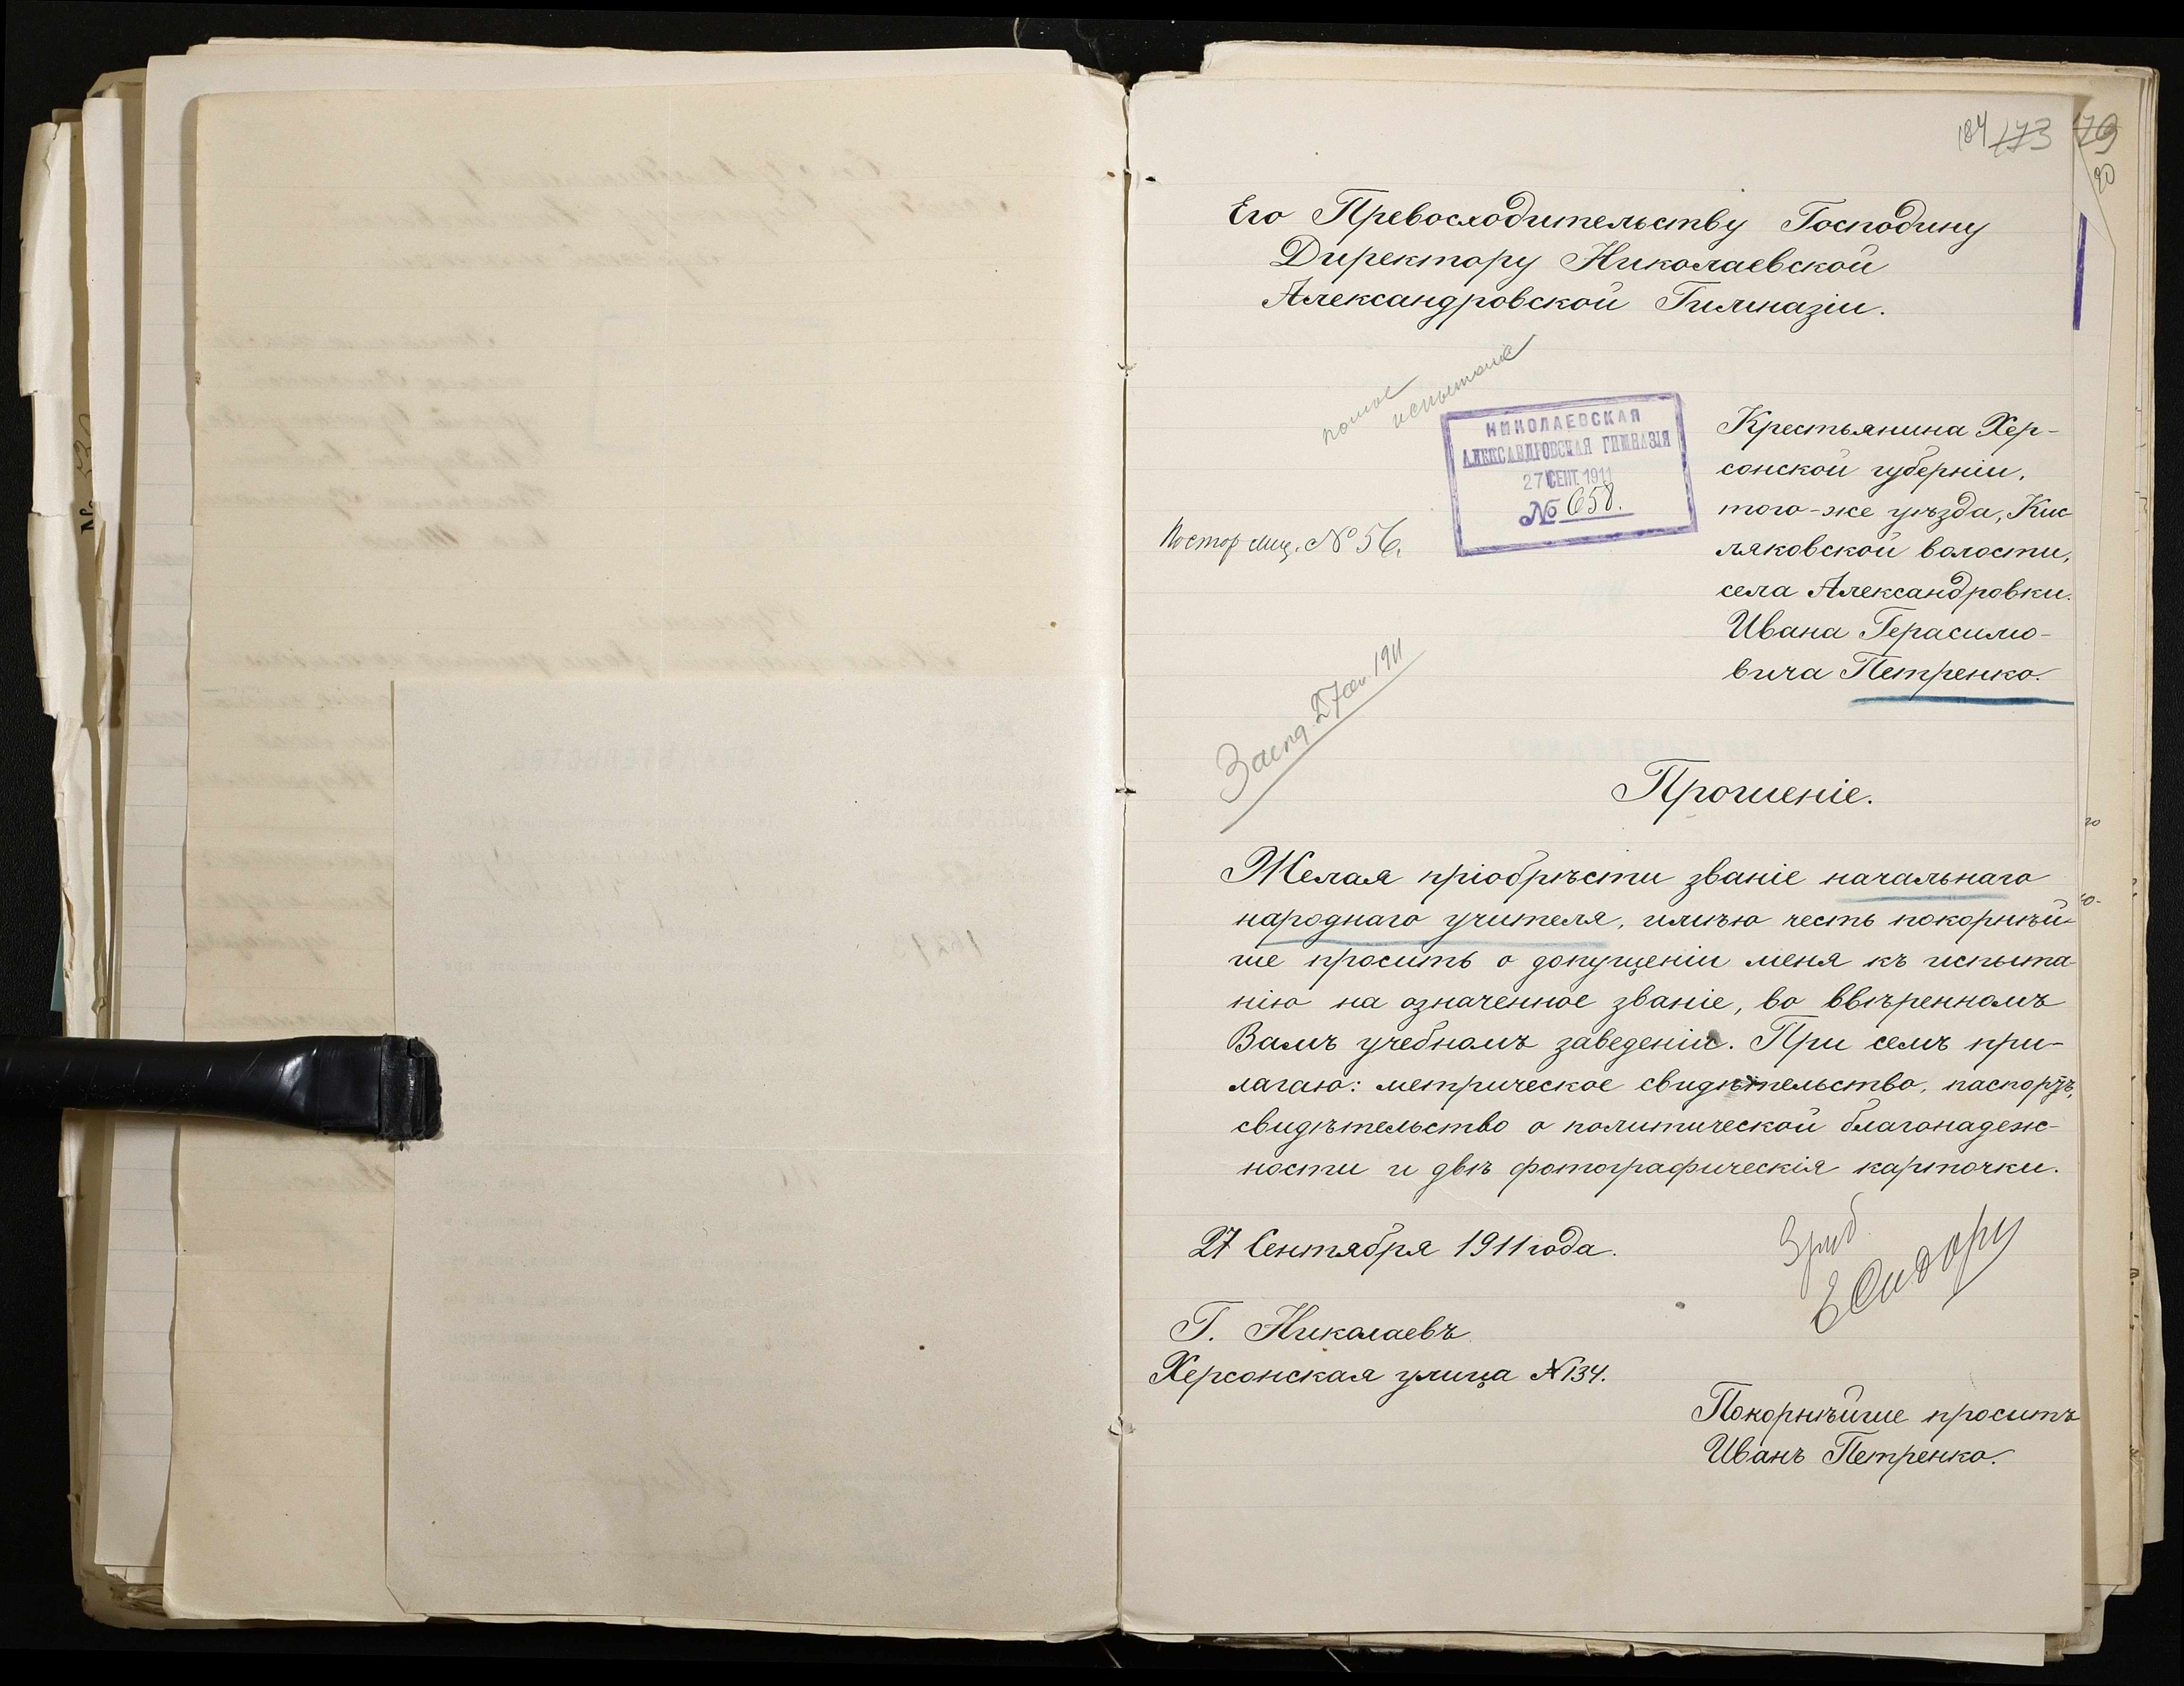 184 173 79
80
Его Превосходительству Господину
Директору Николаевской
Александровской Гимназіи.
полное
испытаніе
НИКОЛАЕВСКАЯ
АЛЕКСАНДРОВСКАЯ ГИМНАЗІЯ
27 СЕНТ. 1911
№ 658.
Постор. лиц. № 56.
Крестьянина Хер-
сонской губерніи,
того-же уѣзда, Кис
ляковской волости,
села Александровки.
Ивана Герасимо-
вича Петренко.
27 сен. 1911
Прошеніе.
Желая пріобрѣсти званіе начальнаго
народнаго учителя, имѣю честь покорнѣй-
ше просить о допущеніи меня къ испыта-
нію на означенное званіе, во ввѣренномъ
Вамъ учебномъ заведеніи. При семъ при-
лагаю: метрическое свидѣтельство, паспортъ,
свидѣтельство о политической благонадеж-
ности и двѣ фотографическія карточки.
27 Сентября 1911 года.
Г. Николаевъ
Херсонская улица №134.
Покорнѣйше проситъ
Иванъ Петренко.